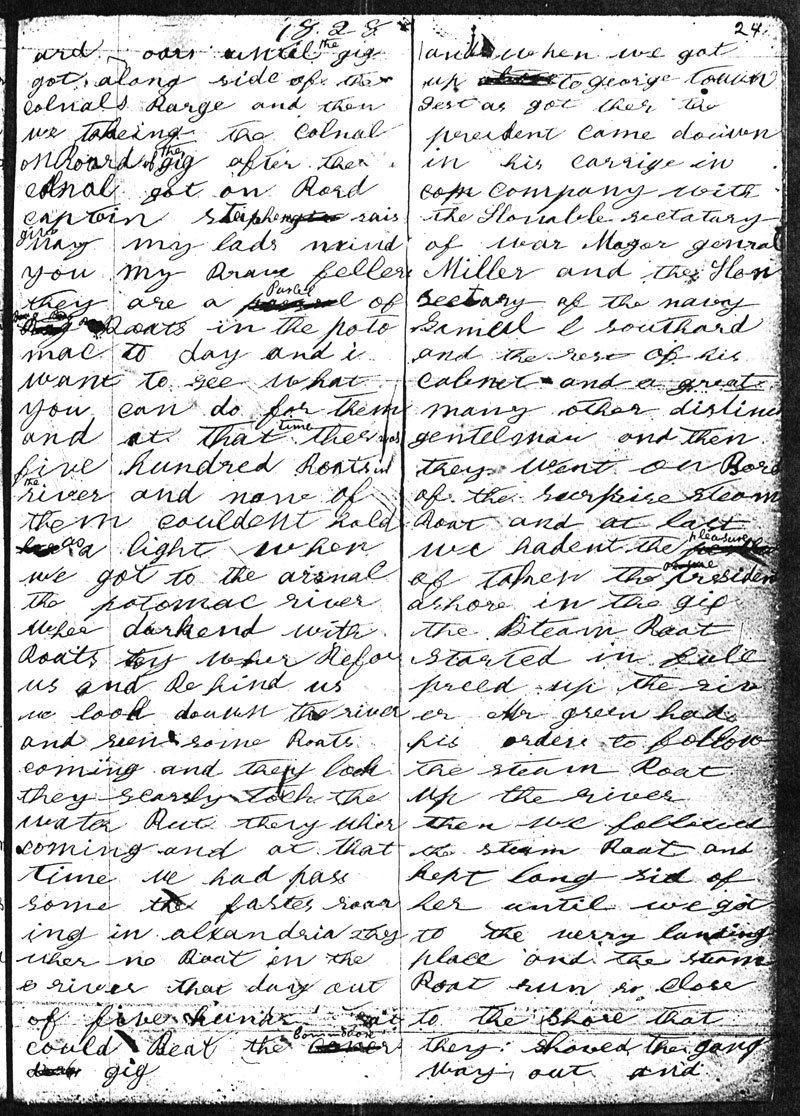 1828
24
ard oars until the gig
got along side of the
Colnals Barge and then
we takeing the Colnal
on Board of the gig after the
colnal got on Bord
captin Stephen sais
give way my lads mind
you my Brave feller
they are a Parcel of
Boats in the poto
mac to day and i
want to see what
you can do for them
and at that time ther was
five hundred Boats in
the river and none of
them couldent hold
as a light when
we got to the arsnal
the potomac river
wher darkend with
Boats wher Befor
us and Behind us
we look down the river
and seen some Boats
coming and they look
they scarsly toch the
water But they wher
coming and at that
time we had pass
some the fastes roar
ing in alxandria they
wher no Boat in the
river that day out
of five hundr
could Beat the Commodore
gig
and when we got
up to george town
Jest as got ther the
president came down
in his carrige in
company with
the Honable sectatary
of war Magor genral
Miller and the Hon
Sectary of the navy
Samuel L southard
and the rest of his
Cabnet and a great
many other distinc
gentelsman and then
they went on Bord
of the surprise steam
Boat and at last
we hadent the pleasure
of taken the president
ashore in the gig
the Steam Boat
started in full
speed up the riv
er Mr green had
his orders to follow
the steam Boat
up the river
then we followed
the steam Boat and
kept long sid of
her until we got
to the verry landing
place and the steam
Boat run so close
to the Shore that
they shoved the gang
way out and